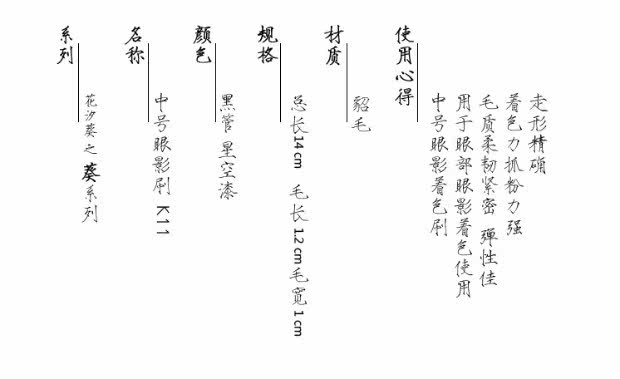 系列
花汐葵之葵系列
名称
中号眼影刷 K11
颜色
黑管 星空漆
规格
总长14cm 毛长1.2cm毛宽1cm
材质
貂毛
使用心得
中号眼影着色刷
用于眼部眼影着色使用
毛质柔韧紧密 弹性佳
着色力抓粉力强
走形精确